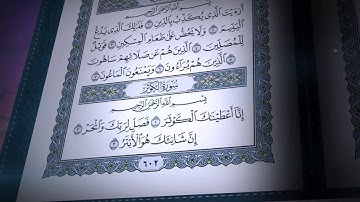 بِسْمِ اللَّهِ الرَّحْمَٰنِ الرَّحِيمِ
أَرَءَيْتَ الَّذِي يُكَذِّبُ بِالدِّينِ ١ فَذَٰلِكَ الَّذِي يَدُعُّ
الْيَتِيمَ ٢ وَلَا يَحُضُّ عَلَىٰ طَعَامِ الْمِسْكِينِ ٣ فَوَيْلٌ
لِلْمُصَلِّينَ ٤ الَّذِينَ هُمْ عَنْ صَلَاتِهِمْ سَاهُونَ ٥
الَّذِينَ هُمْ يُرَاءُونَ ٦ وَيَمْنَعُونَ الْمَاعُونَ ٧
سُورَةُ الْكَوْثَرِ
بِسْمِ اللَّهِ الرَّحْمَٰنِ الرَّحِيمِ
إِنَّا أَعْطَيْنَاكَ الْكَوْثَرَ ١ فَصَلِّ لِرَبِّكَ وَانْحَرْ ٢
إِنَّ شَانِئَكَ هُوَ الْأَبْتَرُ ٣
٦٠٢